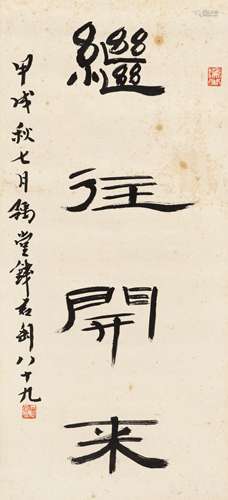 繼往開来
甲戌秋七月豫堂錢君匋八十九